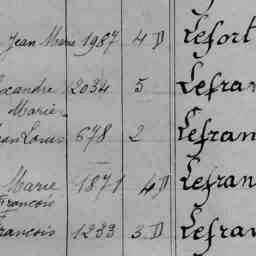 Jean Marie 1987 4 D Lefort
exandre 2034 5 Lefran
Marie
ean Louis 678 2 Lefran
Marie 1871 4 D Lefran
François
rançois 1233 3 D Lefran